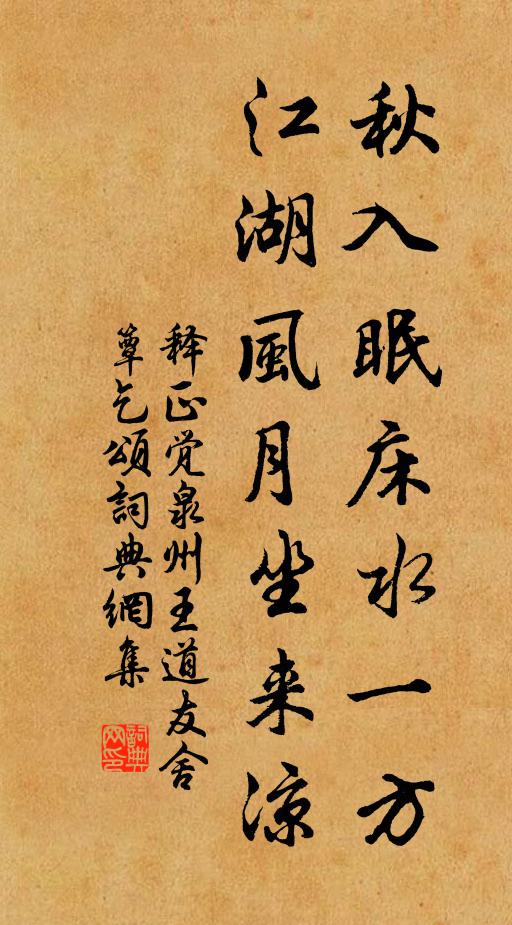 秋入眠床水一方
江湖風月坐来凉
释正觉泉州王道友舍
簟乞頌詞典網集
詞典
网印